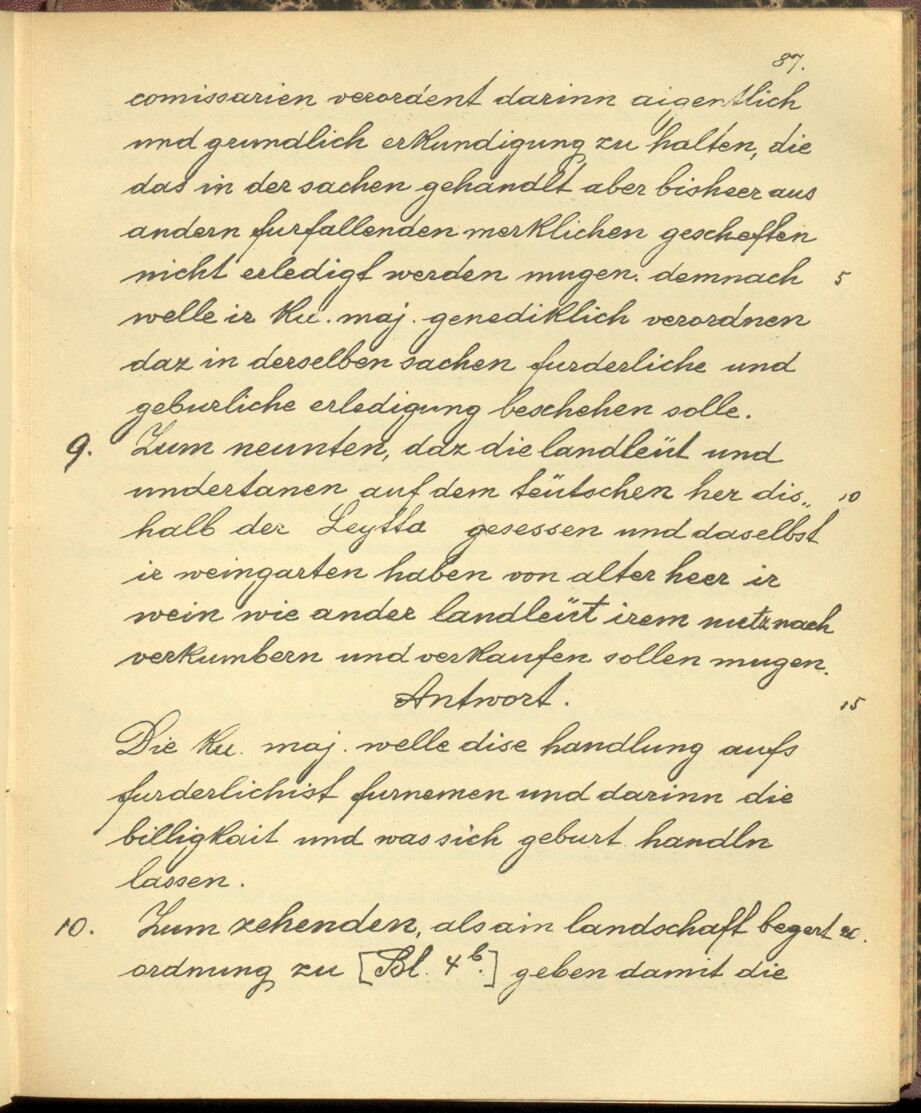 87.
comissarien verordent darinn aigentlich
und grundlich erkundigung zu halten, die
das in der sachen gehandlt aber bisheer aus
andern furfallenden merklichen gescheften
nicht erledigt werden mugen. demnach 5
welle ir Ku. maj. genediklich verordnen
daz in derselben sachen furderliche und
geburliche erledigung beschehen solle.
9. Zum neunten, daz die landleüt und
undertanen auf dem teütschen her dis„ 10
halb der Leytta gesessen und daselbst
ir weingarten haben von alter heer ir
wein wie ander landleüt irem nutz nach
verkumbern und verkaufen sollen mugen.
Antwort. 15
Die Ku. maj. welle dise handlung aufs
furderlichist furnemen und darinn die
billigkait und was sich geburt handln
lassen.
10. Zum zehenden, als ain landschaft begert
ordnung zu [Bl. 4b.] geben damit die